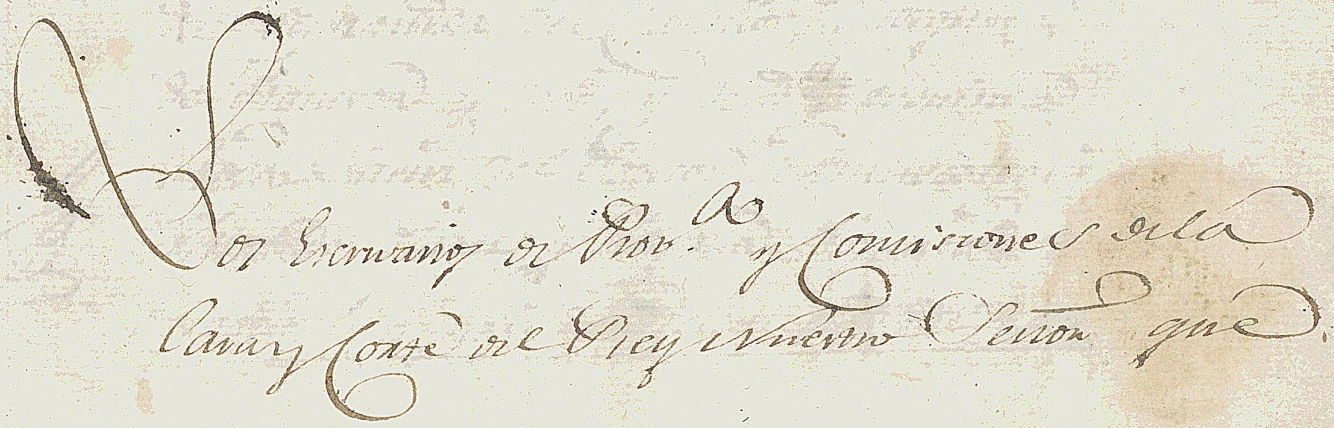 Los Escrivanos de Prov.a y Comisiones dela
Casa y Corte del Rey Nuestro Señor que